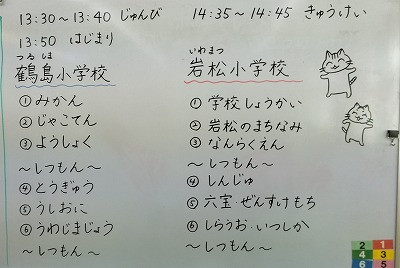 13:30～13:40 じゅんび
13:50 はじまり
つるしま
鶴島小学校
①みかん
②じゃこてん
③ようしょく
～しつもん～
④とうぎゅう
⑤うしおに
⑥うわじまじょう
～しつもん～
14:35～14:45 きゅうけい
いわまつ
岩松小学校
①学校しょうかい
②岩松のまちなみ
③なんらくえん
～しつもん～
④しんじゅ
⑤六宝・ぜんすけもち
⑥しらうお・いつしか
～しつもん～
2 1
4 3
6 5